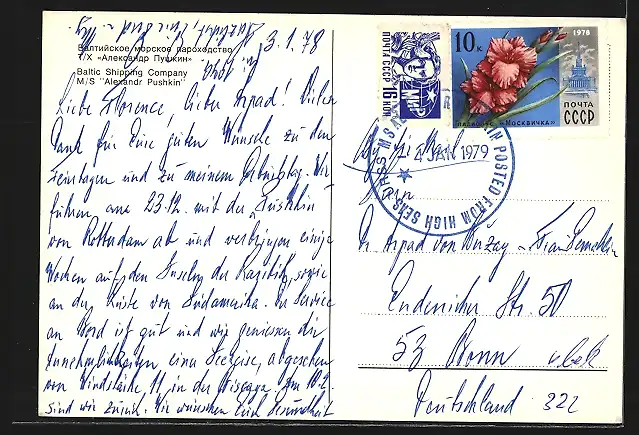 3.1.78
Балтийское морское пароходство
Т/Х «Александр Пушкин»
Baltic Shipping Company
M/S "Alexandr Pushkin"
Liebe Florence, lieber Arpad! Vielen
Dank für Eure guten Wünsche zu den
Feiertagen und zu meinem Geburtstag. Wir
fuhren am 23.12. mit der Puschkin
von Rotterdam ab und verbringen einige
Wochen auf den Inseln der Karibik, sowie
an der Küste von Südamerika. Der Service
an Bord ist gut und wir geniessen die
Annehmlichkeiten einer Seereise, abgesehen
von Windstärke 11 in der Biscaya. Am
sind wir zurück. Wir wünschen Euch Gesundheit
ПОЧТА СССР 16 КОП.
10 к.
1978
ПОЧТА
СССР
ГЛАДИОЛУС «МОСКВИЧКА»
POSTED FROM HIGH SEAS
4 JAN 1979
Dr. Arpad von
Endenicher Str. 50
53 Bonn
Deutschland 322